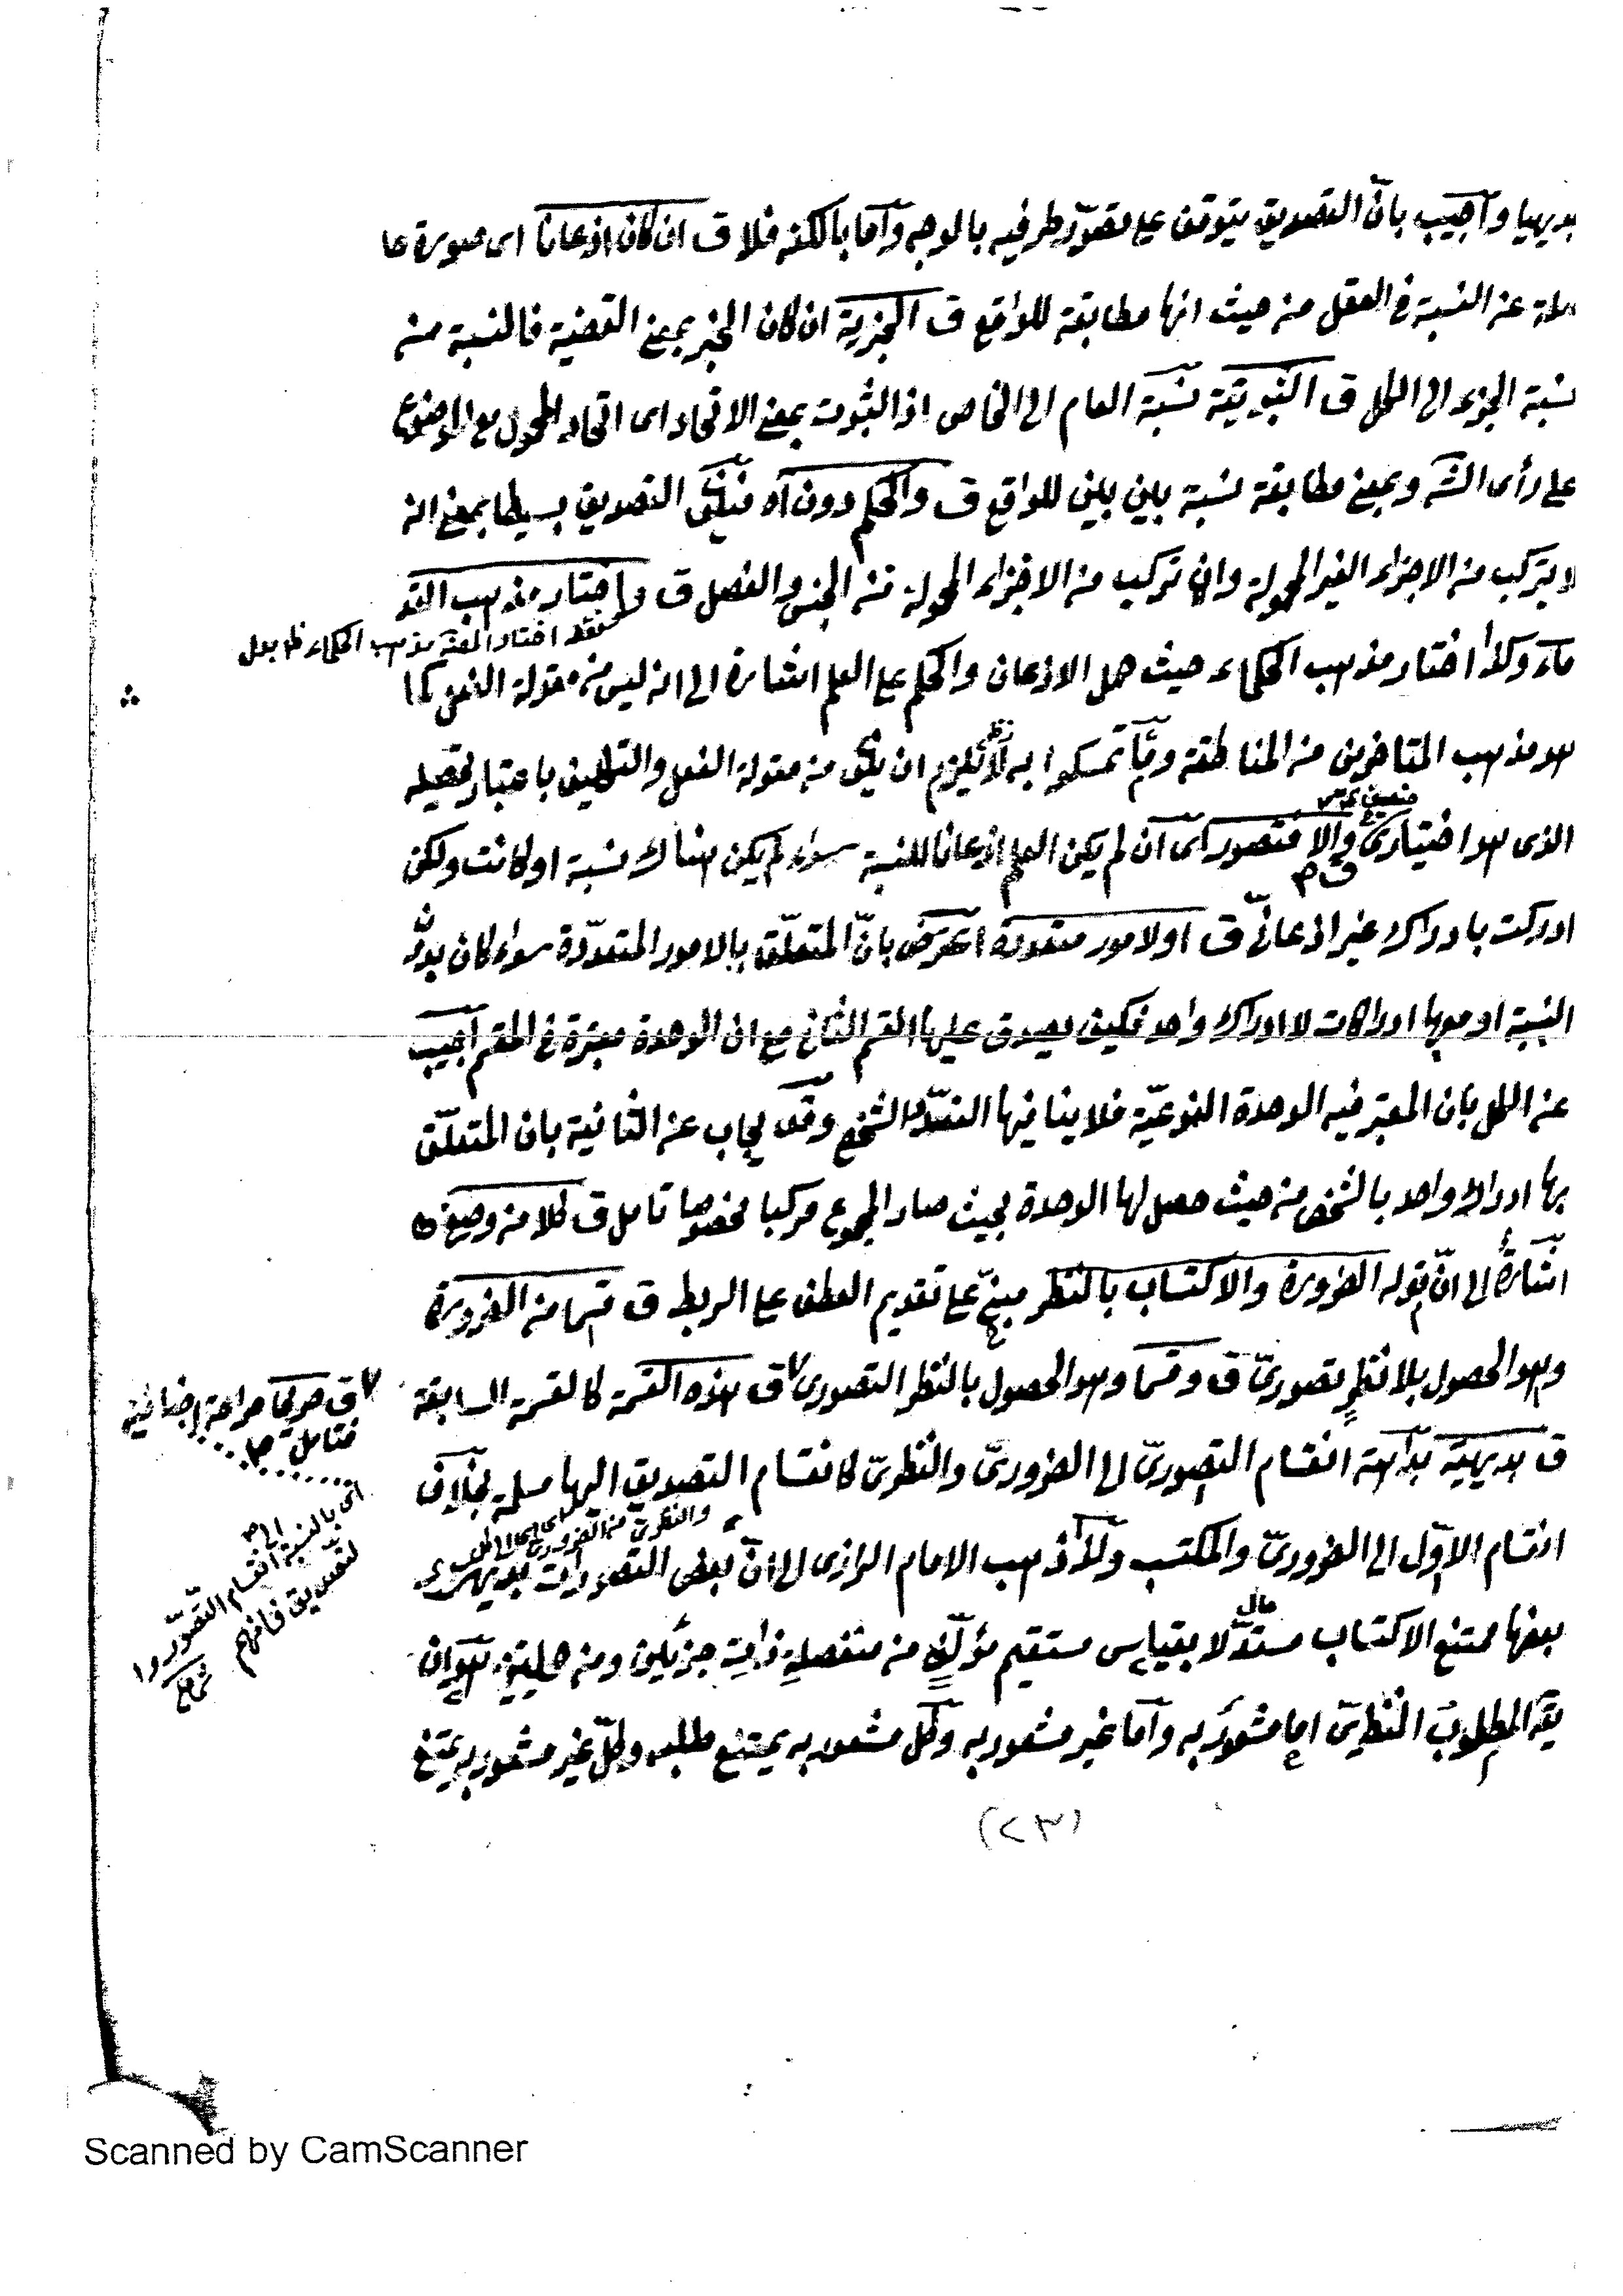 بديهيا وأجيب بانّ التصديق يتوقف على تصوّر طرفيه بالوجه وأما بالكنه فلا ق ان كان اذعانا اى صورة حا
صلة عن النسبة فى العقل من حيث انها مطابقة للواقع ق الخبرية ان كان الخبر بمعنى القضية فالنسبة منه
نسبة الجزء الى الكل ق الثبوتية نسبة العام الى الخاص اذ الثبوت بمعنى الاتحاد اى اتحاد المحمول مع الموضوع
على رأى الشه وبمعنى مطابقة نسبة بين بين للواقع ق والحكم دون آه فيكون التصديق بسيطا بمعنى انه
لا يتركب من الاجزاء الغير المحمولة وان تركب من الاجزاء المحمولة من الجنس والفصل ق واختار مذهب القد
فقد اختار المص مذهب الحكماء
ماء وكذا اختار مذهب الحكماء حيث حمل الاذعان والحكم على العلم اشارة الى انه ليس من مقولة الفعل كما
هو مذهب المتاخرين من المناطقة وما تمسكوا به لا يلزم ان يكون من مقولة الفعل والتكليف باعتبار تحصيله
الذى هو اختيارى والا فتصور اى ان لم يكن العلم اذعانا للنسبة سواء لم يكن هناك نسبة او كانت ولكن
ادركت بادراك غير اذعانىّ ق او لامور متعددة اعترض بانّ المتعلّق بالامور المتعدّدة سواء كان بدون
النسبة او معها ادراكات لا ادراك واحد فكيف يصدق عليها القسم الثانى مع ان الوحدة معتبرة فى المقسم أجيب
عن الكل بان المعتبر فيه الوحدة النوعيّة فلا ينافيها التعدّد الشخصى وقد يجاب عن الثانية بان المتعلّق
بها ادراك واحد بالشخص من حيث حصل لها الوحدة بحيث صار المجموع مركبا مخصوصا تامل ق كلا من وصفى
اشارة الى انّ قوله الضرورة والاكتساب بالنظر مبنىّ على تقديم العطف على الربط ق قسما من الضرورة
وهو الحصول بلا نظرٍ تصورىّ ق وقسما وهو الحصول بالنظر التصورى ق هذه القسمة كالقسمة السابقة
ق صريحا صراحة اضافية
فتامل
ق بديهيّة بداهة انقسام التصورىّ الى الضرورىّ والنظرىّ كانقسام التصديق اليهما مسلمة بخلاف
اى بالنسبة الى انقسام التصوّر
لتصديق فافهم
والنظرىّ من الضرورىّ
انقسام الاوّل الى الضرورىّ والمكتسب ولذا ذهب الامام الرازى الى انّ بعض التصورات بديهى و
بعضها ممتنع الاكتساب مستدلا بقياس مستقيم مؤلّفٍ من منفصلةٍ ذات جزئين ومن حمليتين هو ان
يقّ المطلوب النظرىّ اما مشعور به وأما غير مشعور به وكل مشعور به يمتنع طلبه وكلّ غير مشعور به يمتنع
(٢٣)
Scanned by CamScanner